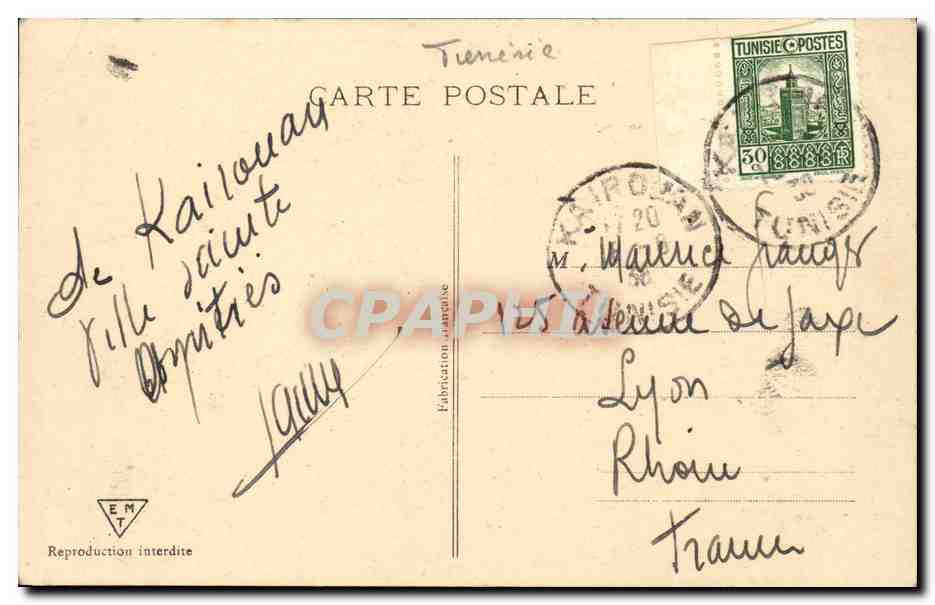 Tunisie
CARTE POSTALE
TUNISIE POSTES
30 c
RF
KAIROUAN
17 20
TUNISIE
KAIROUAN
30
TUNISIE
de Kairouan
Ville sainte
Amitiés
M. Maurice Granger
125 Avenue de Saxe
Lyon
Rhône
France
Fabrication française
CPAPHIL
EMT
Reproduction interdite